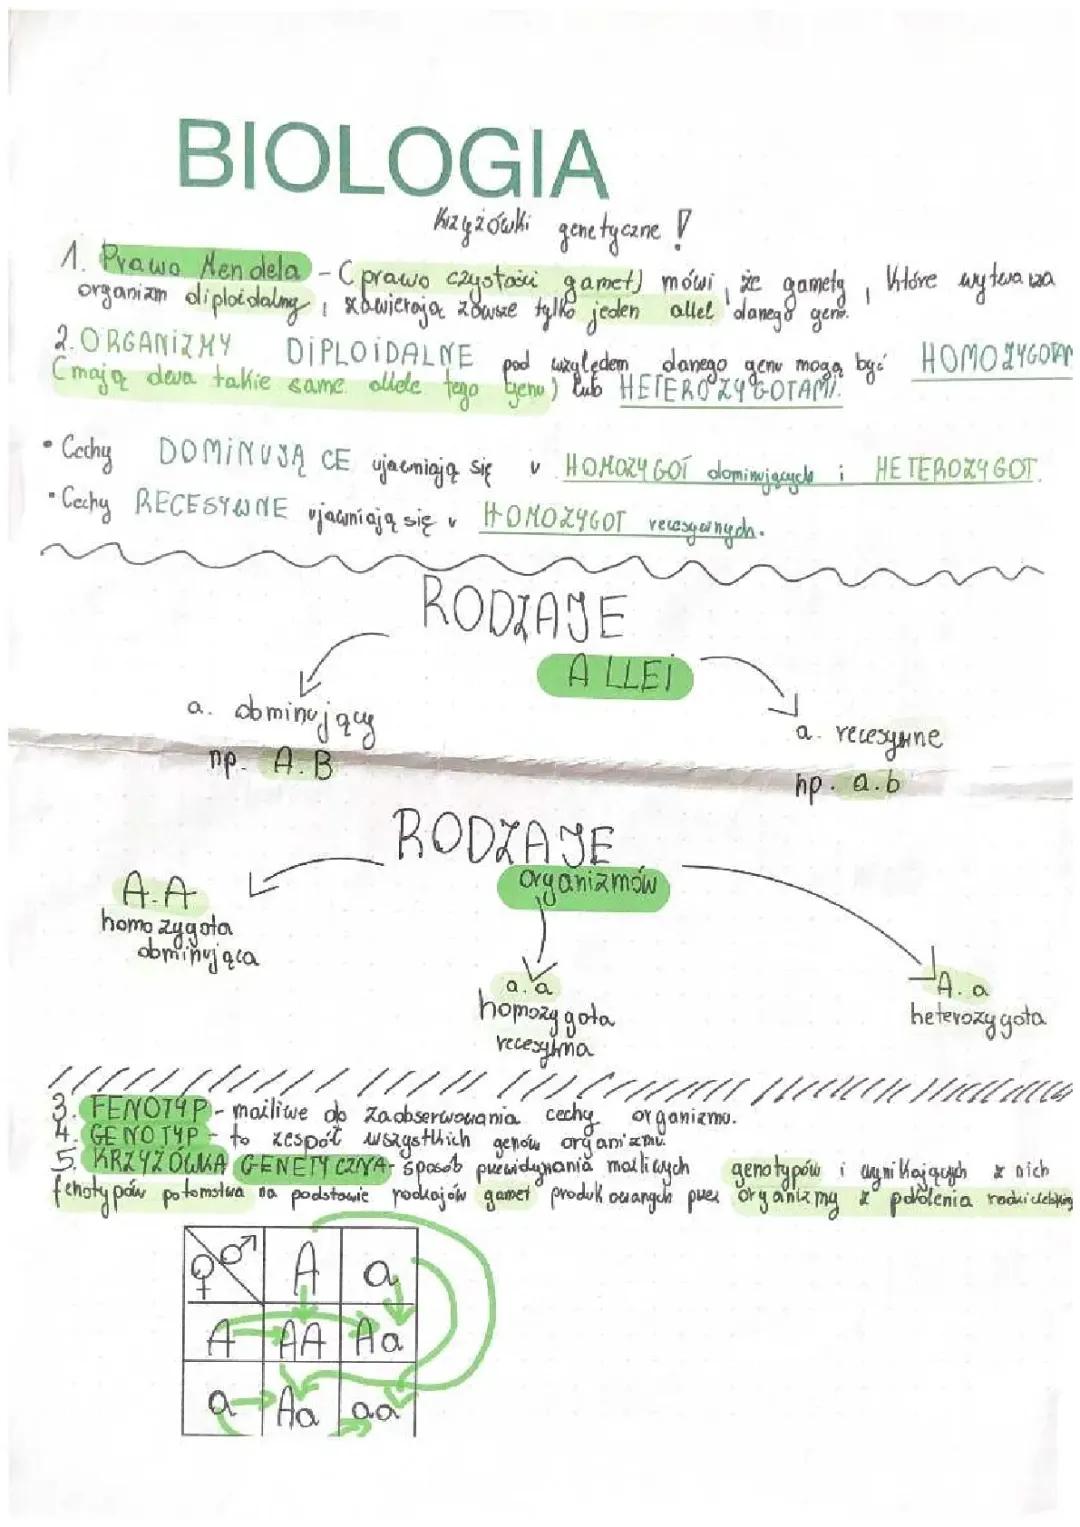 BIOLOGIA
Krzyżówki genetyczne !
1. Prawo Mendela - (prawo czystości gamet) mówi, że gamety, które wytwarza
organizm diploidalny, zawierają zawsze tylko jeden allel danego genu.
2. ORGANIZMY DIPLOIDALNE pod względem danego genu mogą być HOMOZYGOTAM
(mają dwa takie same allele tego genu) lub HETEROZYGOTAMI.
• Cechy DOMINUJĄCE ujawniają się u HOMOZYGOT dominujących i HETEROZYGOT.
• Cechy RECESYWNE ujawniają się u HOMOZYGOT recesywnych.
RODZAJE
ALLELI
a. dominujący
np. A.B
a. recesywne
np. a.b
RODZAJE
organizmów
A.A
homozygota
dominująca
a.a
homozygota
recesywna
A.a
heterozygota
3. FENOTYP - możliwe do zaobserwowania cechy organizmu.
4. GENOTYP - to zespół wszystkich genów organizmu.
5. KRZYŻÓWKA GENETYCZNA - sposób przewidywania możliwych genotypów i wynikających z nich
fenotypów potomstwa na podstawie rodzajów gamet produkowanych przez organizmy z pokolenia
♀ ♂ A a
A AA Aa
a Aa aa